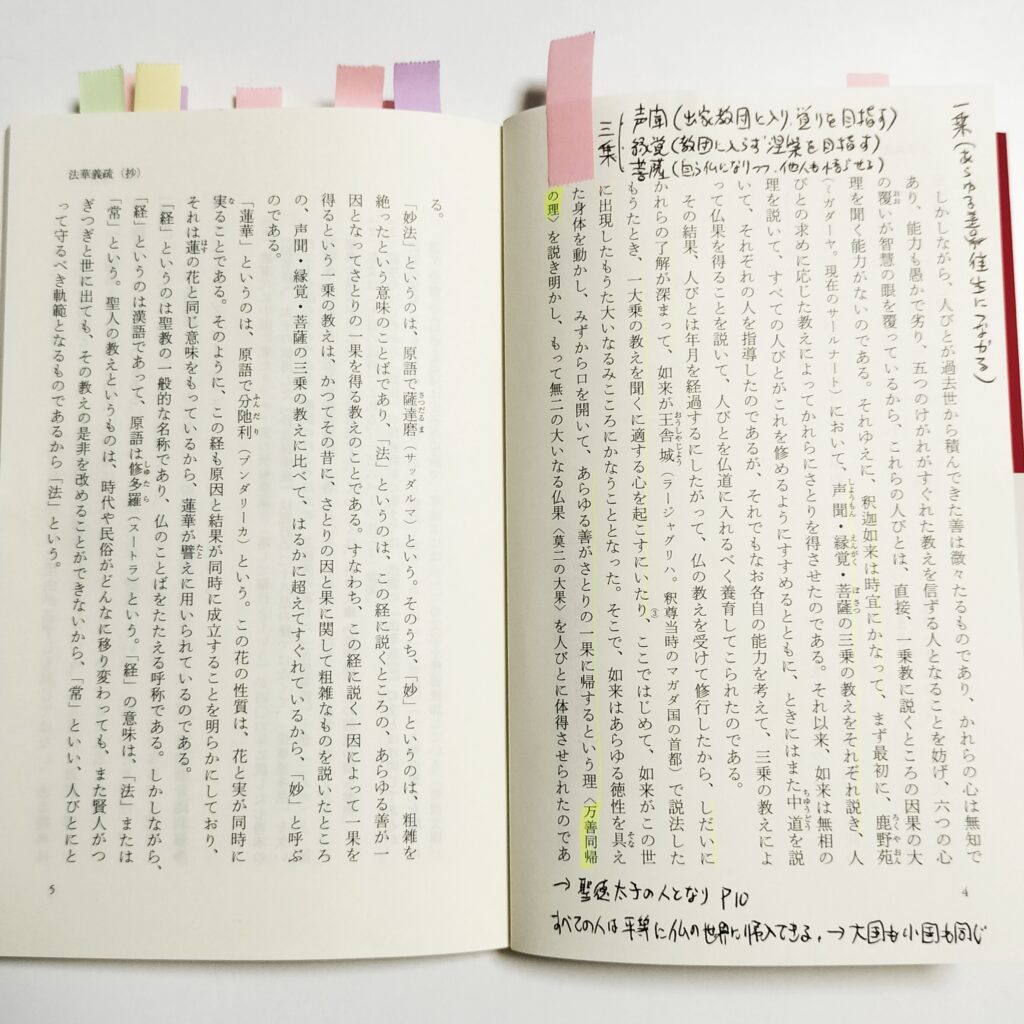 一乗(あらゆる善が往生につながる)
三乗
声聞(出家教団に入り、覚りを目指す)
縁覚(教団に入らず涅槃を目指す)
菩薩(自ら仏になりつつ、他人も悟らせる)
しかしながら、人びとが過去世から積んできた善は微々たるものであり、かれらの心は無知で
あり、能力も愚かで劣り、五つのけがれがすぐれた教えを信ずる人となることを妨げ、六つの心
おお
の覆いが智慧の眼を覆っているから、これらの人びとは、直接、一乗教に説くところの因果の大
ろくやおん
理を聞く能力がないのである。それゆえに、釈迦如来は時宜にかなって、まず最初に、鹿野苑
しょうもん えんがく ぼさつ
(ミガダーヤ。現在のサールナート)において、声聞・縁覚・菩薩の三乗の教えをそれぞれ説き、人
びとの求めに応じた教えによってかれらにさとりを得させたのである。それ以来、如来は無相の
ちゅうどう
理を説いて、すべての人びとがこれを修めるようにすすめるとともに、ときにはまた中道を説
いて、それぞれの人を指導したのであるが、それでもなお各自の能力を考えて、三乗の教えによ
って仏果を得ることを説いて、人びとを仏道に入れるべく養育してこられたのである。
その結果、人びとは年月を経過するにしたがって、仏の教えを受けて修行したから、しだいに
おうしゃじょう
かれらの了解が深まって、如来が王舎城(ラージャグリハ。釈尊当時のマガダ国の首都)で説法した
もうたとき、一大乗の教えを聞くに適する心を起こすにいたり③、ここではじめて、如来がこの世
に出現したもうた大いなるみこころにかなうこととなった。そこで、如来はあらゆる徳性を具え
そな
た身体を動かし、みずから口を開いて、あらゆる善がさとりの一果に帰するという理〈万善同帰
の理〉を説き明かし、もって無二の大いなる仏果〈莫二の大果〉を人びとに体得させられたのであ
4
→聖徳太子の人となり P10
すべての人は平等に仏の世界に帰入できる。→大国も小国も同じ
法華義疏(抄)
る。
さつだるま
「妙法」というのは、原語で薩達磨(サッダルマ)という。そのうち、「妙」というのは、粗雑を
絶ったという意味のことばであり、「法」というのは、この経に説くところの、あらゆる善が一
因となってさとりの一果を得る教えのことである。すなわち、この経に説く一因によって一果を
得るという一乗の教えは、かつてその昔に、さとりの因と果に関して粗雑なものを説いたところ
の、声聞・縁覚・菩薩の三乗の教えに比べて、はるかに超えてすぐれているから、「妙」と呼ぶ
のである。
ふんだり
「蓮華」というのは、原語で分陁利(プンダリーカ)という。この花の性質は、花と実が同時に
な
実ることである。そのように、この経も原因と結果が同時に成立することを明らかにしており、
はす たと
それは蓮の花と同じ意味をもっているから、蓮華が譬えに用いられているのである。
「経」というのは聖教の一般的な名称であり、仏のことばをたたえる呼称である。しかしながら、
しゅたら
「経」というのは漢語であって、原語は修多羅(スートラ)という。「経」の意味は、「法」または
「常」という。聖人の教えというものは、時代や民俗がどんなに移り変わっても、また賢人がつ
ぎつぎと世に出ても、その教えの是非を改めることができないから、「常」といい、人びとにと
って守るべき軌範となるものであるから「法」という。
5